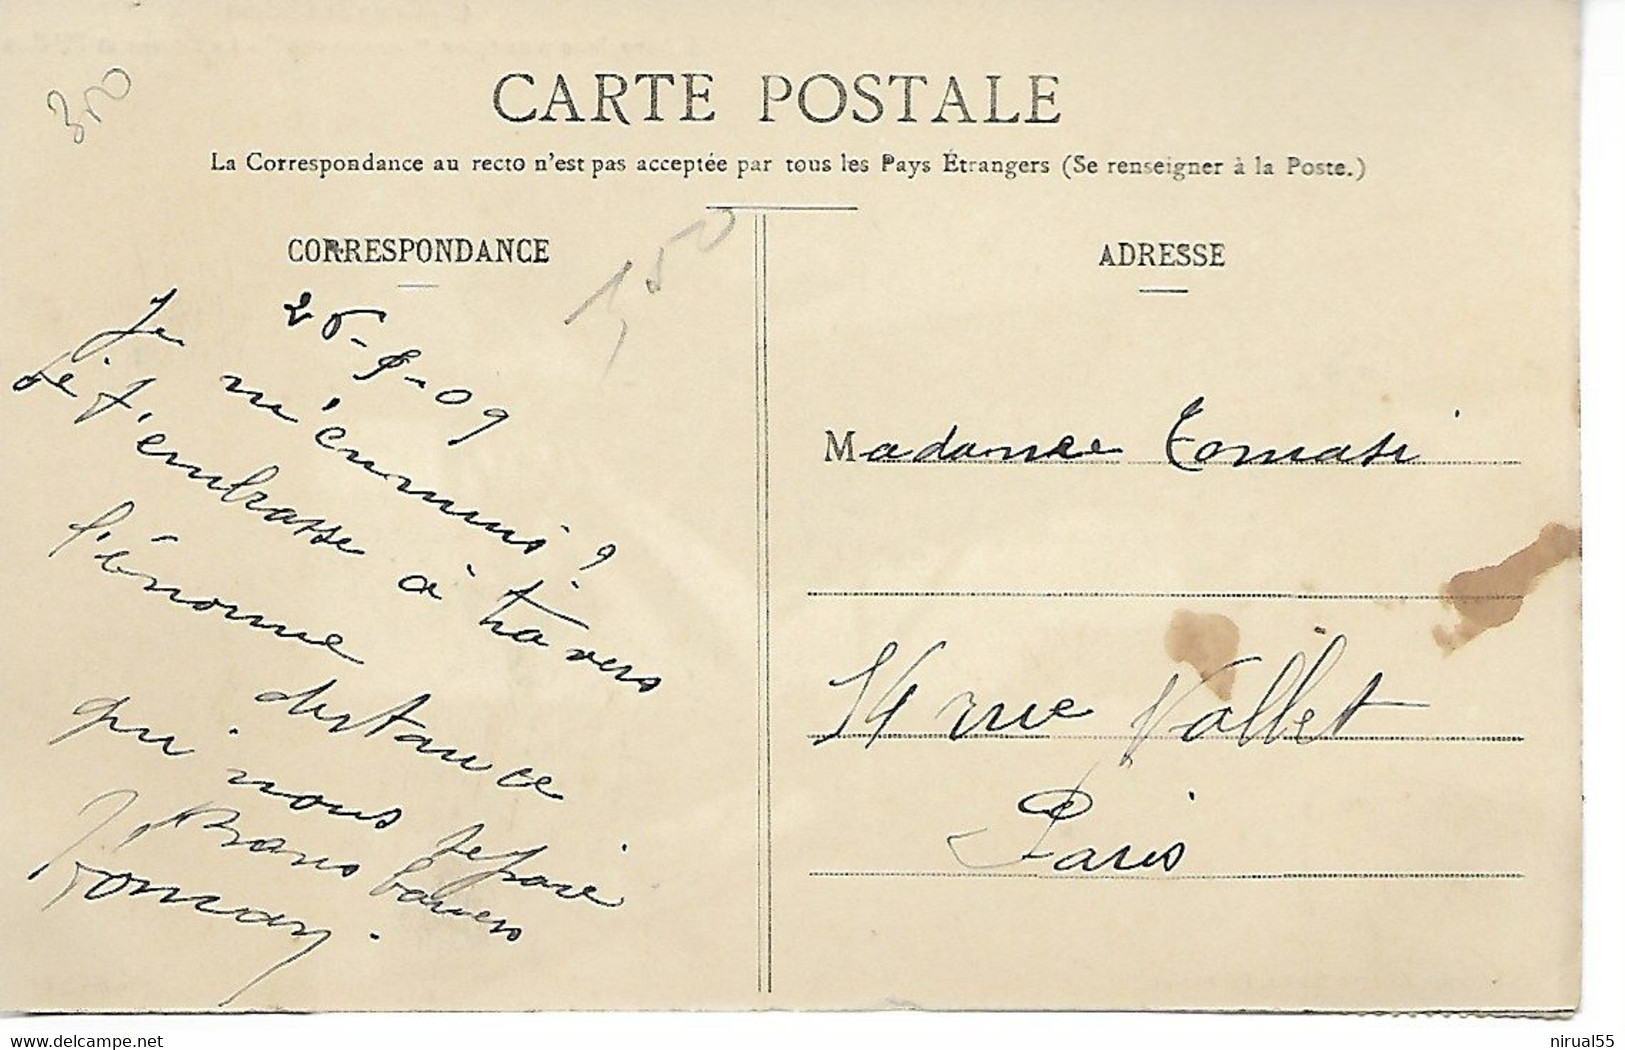 300
CARTE POSTALE
La Correspondance au recto n'est pas acceptée par tous les Pays Étrangers (Se renseigner à la Poste.)
CORRESPONDANCE
ADRESSE
1,50
Je m'ennuis ?
et t'embrasse à travers
l'énorme distance
qui nous sépare
Bons baisers
Madame Tomasi
14 rue Vallet
Paris
www.delcampe.net
nirual55